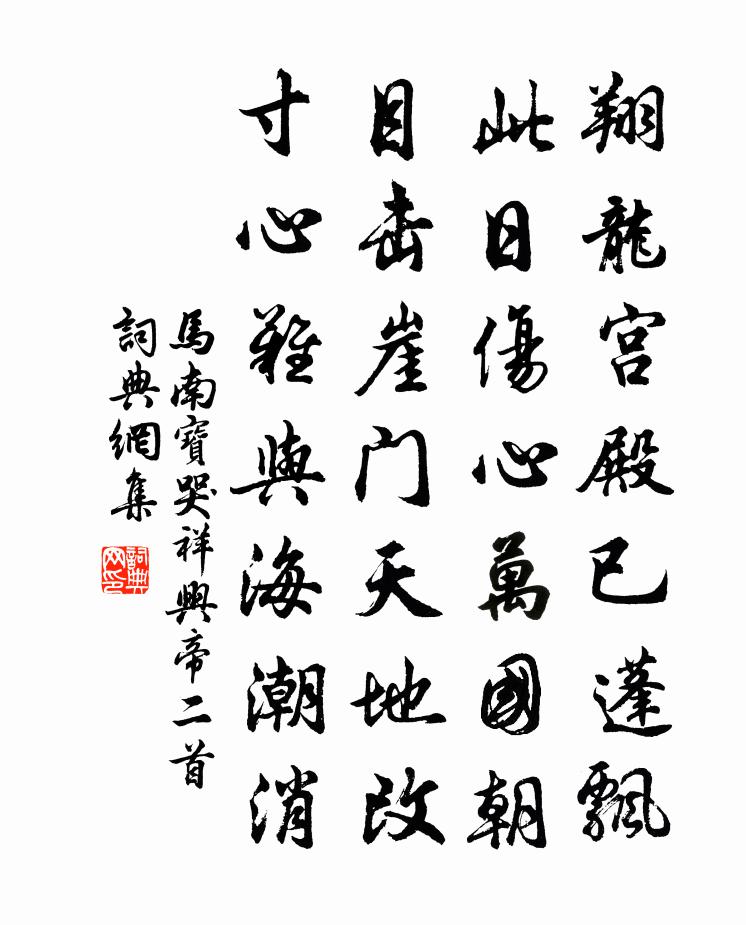 翔龍宮殿已蓬飄
此日傷心萬國朝
目击崖门天地改
寸心難與海潮消
馬南寶哭祥興帝二首
詞典網集
詞典网印